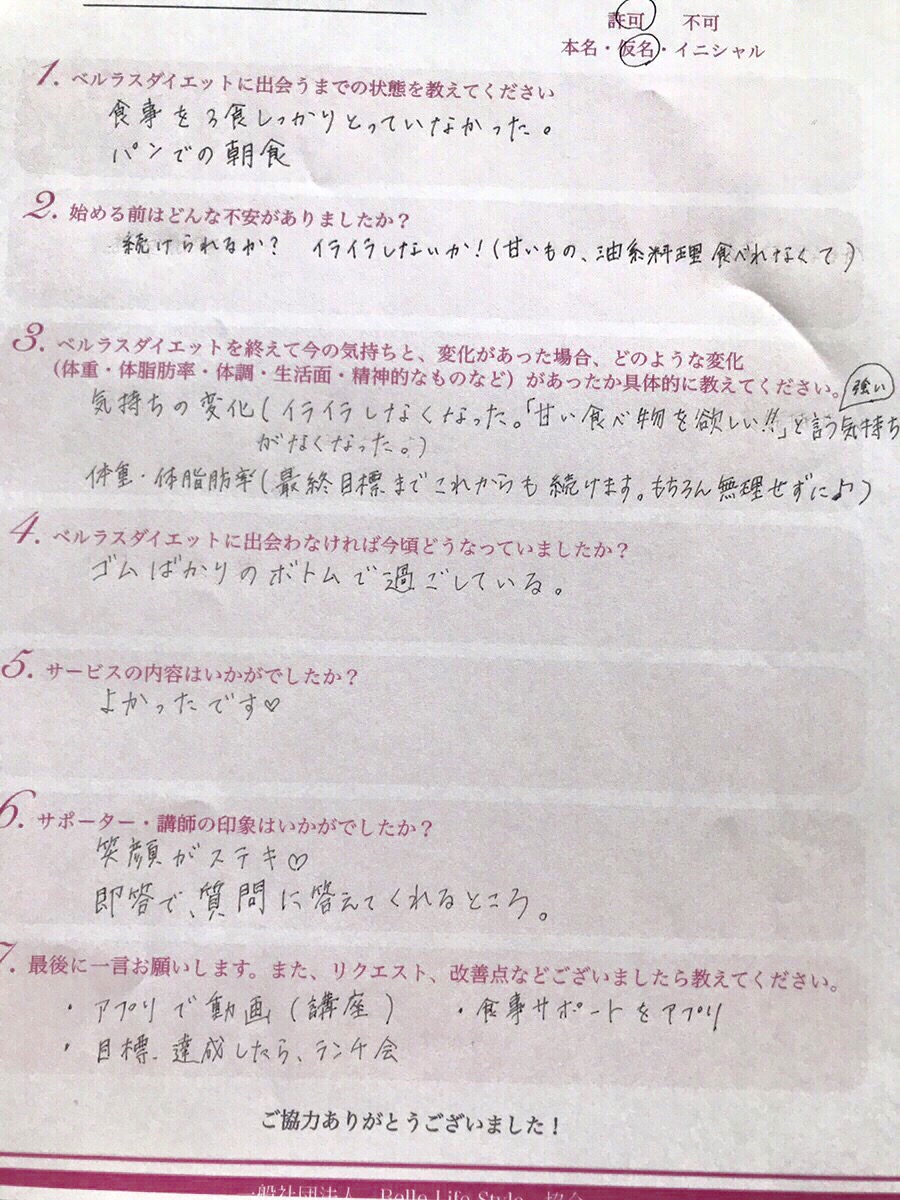 許可 不可
本名・仮名・イニシャル
1. ベルラスダイエットに出会うまでの状態を教えてください
食事を3食しっかりとっていなかった。
パンでの朝食
2. 始める前はどんな不安がありましたか？
続けられるか? イライラしないか!(甘いもの、油系料理食べれなくて)
3. ベルラスダイエットを終えて今の気持ちと、変化があった場合、どのような変化
(体重・体脂肪率・体調・生活面・精神的なものなど)があったか具体的に教えてください。
強い
気持ちの変化(イライラしなくなった。「甘い食べ物を欲しい!!」と言う気持ち
がなくなった。)
体重・体脂肪率(最終目標までこれからも続けます。もちろん無理せずに♪)
4. ベルラスダイエットに出会わなければ今頃どうなっていましたか？
ゴムばかりのボトムで過ごしている。
5. サービスの内容はいかがでしたか？
よかったです♡
6. サポーター・講師の印象はいかがでしたか？
笑顔がステキ♡
即答で、質問に答えてくれるところ。
7. 最後に一言お願いします。また、リクエスト、改善点などございましたら教えてください。
・アプリで動画(講座) ・食事サポートをアプリ
・目標、達成したら、ランチ会
ご協力ありがとうございました！
一般社団法人 Belle Life Style 協会